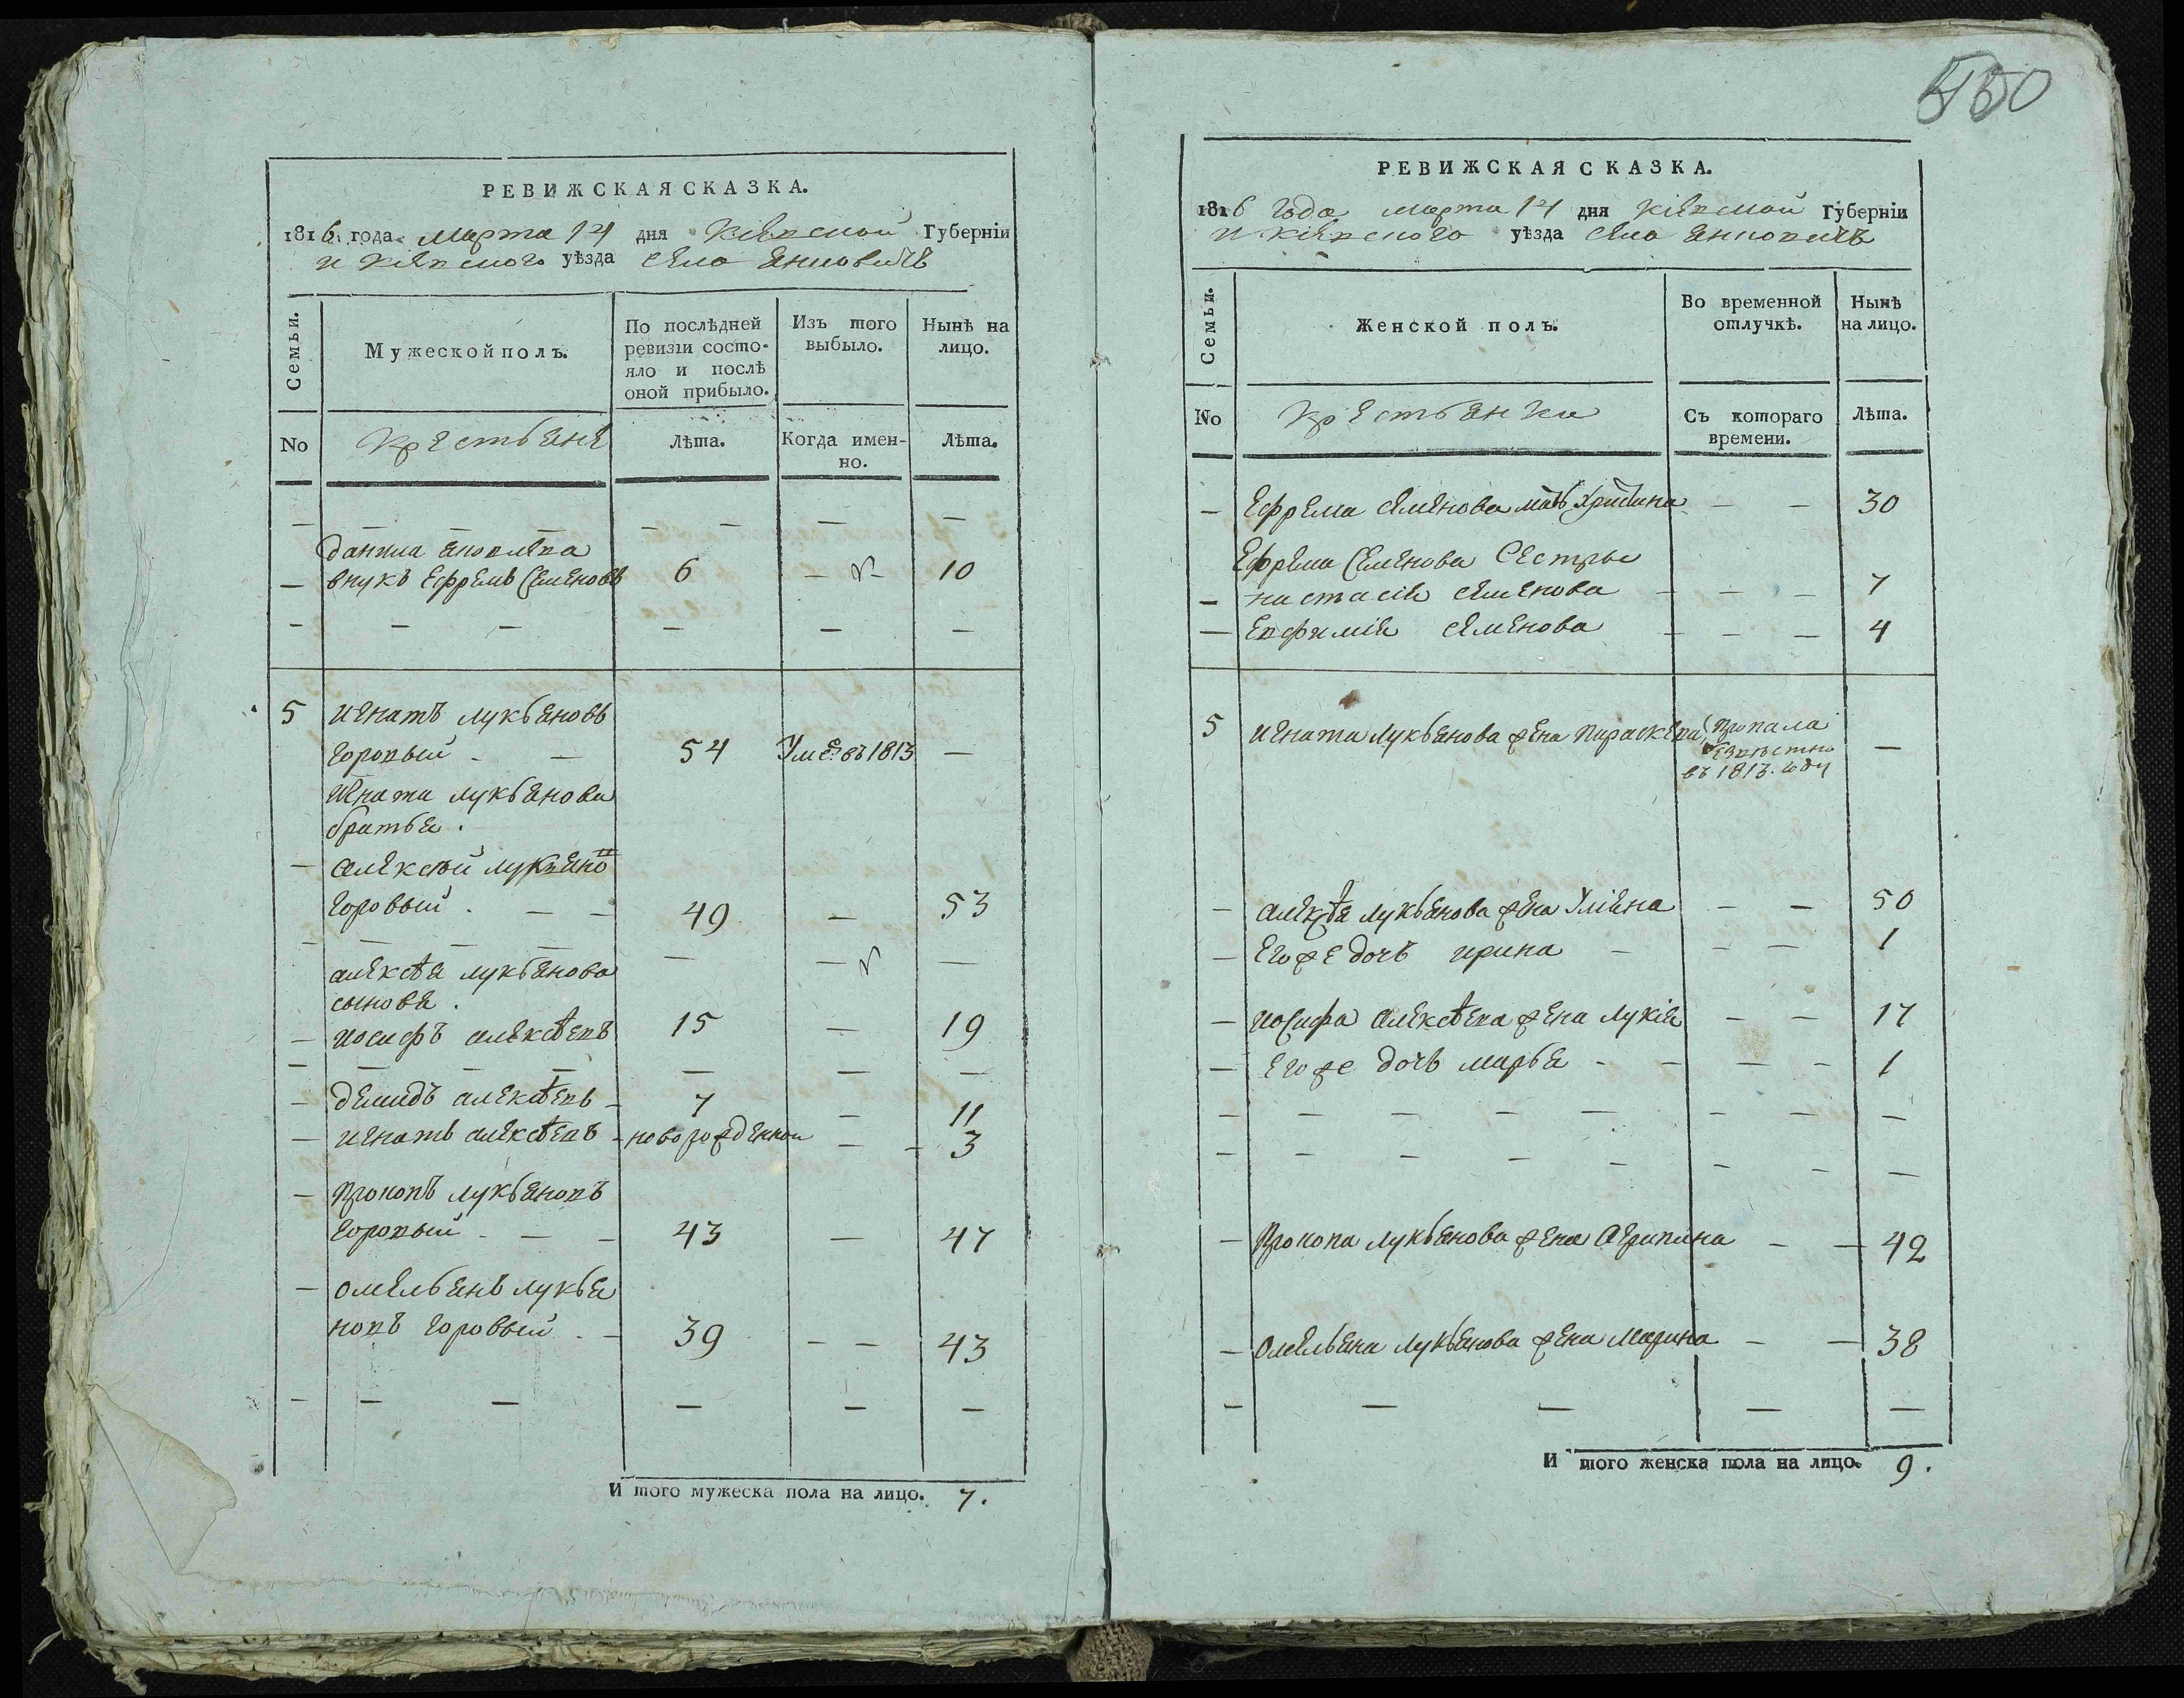 550
РЕВИЖСКАЯ СКАЗКА.
1816 года Марта 14 дня Кіевской Губерніи
и Кіевского уѣзда села Янковичъ
Семьи.
Мужеской полъ.
По послѣдней ревизіи состо-
яло и послѣ
оной прибыло.
Изъ того
выбыло.
Нынѣ на
лицо.
No
Крестьяне
Лѣта.
Когда имен-
но.
Лѣта.
— — — — — — —
данила яковлева
— внукъ Ефремъ Семеновъ 6 — 10
— — — — — —
5 игнатъ лукьяновъ
горовый - — 54 Умре въ 1813 —
Игната лукьянова
братья.
— алексѣй лукьяно
горовый. — — 49 — 53
— — — —
алексѣя лукьянова — — —
сыновя.
— иосифъ алексѣевъ 15 — 19
— — — — — — —
— демидъ алексѣевъ — 7 — 11
— игнатъ алексѣевъ - новорожденной — - 3
— Прокопъ лукьяновъ
горовый - — - 43 — 47
— омельянъ лукья
новъ горовый - — 39 — — 43
— — — — — —
И того мужеска пола на лицо. 7.
РЕВИЖСКАЯ СКАЗКА.
1816 года марта 14 дня Кіевской Губерніи
и Кіевского уѣзда села Янковичъ
Семьи.
Женской полъ.
Во временной
отлучкѣ.
Нынѣ
на лицо.
No
Крестьянки
Съ котораго
времени.
Лѣта.
— Ефрема семенова мать Христина — — 30
Ефрема Семенова Сестры
— настасія семенова — — — 7
— Евфимія семенова — — — 4
5 игната лукьянова жена Параскева Пропала
безвѣстно —
въ 1813. году
— алексѣя лукьянова жена Уліяна — — 50
— Егоже дочь ирина — — — 1
— иосифа алексѣева жена лукія — — 17
— Егоже дочь марья - — — — 1
— — — — — — — —
— — — — — — — —
— Прокопа лукьянова жена Агрипина — — 42
— Омельяна лукьянова жена Марина — — 38
— — — — —
И того женска пола на лицо. 9.